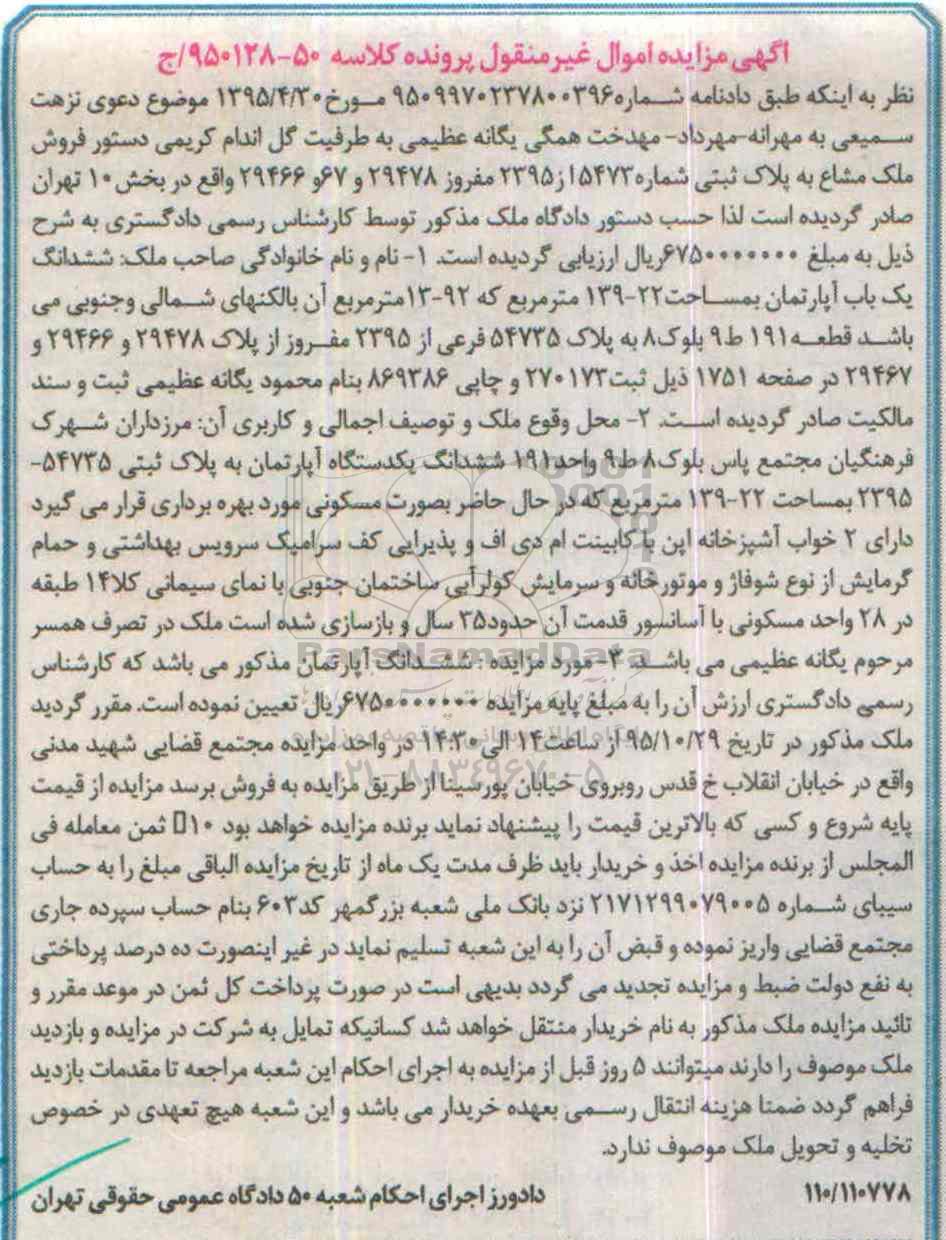 آگهی مزایده اموال غیرمنقول پرونده کلاسه ۵۰-۹۵۰۱۲۸/ج
نظر به اینکه طبق دادنامه شماره۹۵۰۹۹۷۰۲۳۷۸۰۰۳۹۶ مورخ۱۳۹۵/۴/۳۰ موضوع دعوی نزهت
سمیعی به مهرانه-مهرداد- مهدخت همگی یگانه عظیمی به طرفیت گل اندام کریمی دستور فروش
ملک مشاع به پلاک ثبتی شماره۱۵۴۷۳از۲۳۹۵ مفروز ۲۹۴۷۸ و ۶۷و ۲۹۴۶۶ واقع در بخش ۱۰ تهران
صادر گردیده است لذا حسب دستور دادگاه ملک مذکور توسط کارشناس رسمی دادگستری به شرح
ذیل به مبلغ ۶۷۵۰۰۰۰۰۰۰ریال ارزیابی گردیده است. ۱- نام و نام خانوادگی صاحب ملک: ششدانگ
یک باب آپارتمان بمساحت۲۲-۱۳۹ مترمربع که ۹۲-۱۳مترمربع آن بالکنهای شمالی وجنوبی می
باشد قطعه۱۹۱ ط۹ بلوک۸ به پلاک ۵۴۷۳۵ فرعی از ۲۳۹۵ مفروز از پلاک ۲۹۴۷۸ و ۲۹۴۶۶ و
۲۹۴۶۷ در صفحه ۱۷۵۱ ذیل ثبت۲۷۰۱۷۳ و چاپی ۸۶۹۳۸۶ بنام محمود یگانه عظیمی ثبت و سند
مالکیت صادر گردیده است. ۲- محل وقوع ملک و توصیف اجمالی و کاربری آن: مرزداران شهرک
فرهنگیان مجتمع یاس بلوک۸ ط۹ واحد۱۹۱ ششدانگ یکدستگاه آپارتمان به پلاک ثبتی ۵۴۷۳۵-
۲۳۹۵ بمساحت ۲۲-۱۳۹ مترمربع که در حال حاضر بصورت مسکونی مورد بهره برداری قرار می گیرد
دارای ۲ خواب آشپزخانه اپن با کابینت ام دی اف و پذیرایی کف سرامیک سرویس بهداشتی و حمام
گرمایش از نوع شوفاژ و موتورخانه و سرمایش کولرآبی ساختمان جنوبی با نمای سیمانی کلا۱۴ طبقه
در ۲۸ واحد مسکونی با آسانسور قدمت آن حدود۳۵ سال و بازسازی شده است ملک در تصرف همسر
مرحوم یگانه عظیمی می باشد. ۳- مورد مزایده : ششدانگ آپارتمان مذکور می باشد که کارشناس
رسمی دادگستری ارزش آن را به مبلغ پایه مزایده ۶۷۵۰۰۰۰۰۰۰ریال تعیین نموده است. مقرر گردید
ملک مذکور در تاریخ ۹۵/۱۰/۲۹ از ساعت۱۴ الی ۱۴:۳۰ در واحد مزایده مجتمع قضایی شهید مدنی
واقع در خیابان انقلاب خ قدس روبروی خیابان پورسینا از طریق مزایده به فروش برسد مزایده از قیمت
پایه شروع و کسی که بالاترین قیمت را پیشنهاد نماید برنده مزایده خواهد بود ۱۰▯ ثمن معامله فی
المجلس از برنده مزایده اخذ و خریدار باید ظرف مدت یک ماه از تاریخ مزایده الباقی مبلغ را به حساب
سیبای شماره ۲۱۷۱۲۹۹۰۷۹۰۰۵ نزد بانک ملی شعبه بزرگمهر کد۶۰۳ بنام حساب سپرده جاری
مجتمع قضایی واریز نموده و قبض آن را به این شعبه تسلیم نماید در غیر اینصورت ده درصد پرداختی
به نفع دولت ضبط و مزایده تجدید می گردد بدیهی است در صورت پرداخت کل ثمن در موعد مقرر و
تائید مزایده ملک مذکور به نام خریدار منتقل خواهد شد کسانیکه تمایل به شرکت در مزایده و بازدید
ملک موصوف را دارند میتوانند ۵ روز قبل از مزایده به اجرای احکام این شعبه مراجعه تا مقدمات بازدید
فراهم گردد ضمنا هزینه انتقال رسمی بعهده خریدار می باشد و این شعبه هیچ تعهدی در خصوص
تخلیه و تحویل ملک موصوف ندارد.
۱۱۰/۱۱۰۷۷۸ دادورز اجرای احکام شعبه ۵۰ دادگاه عمومی حقوقی تهران
ParsNamadData
۰۲۱-۸۸۳۴۹۶۷۰-۵